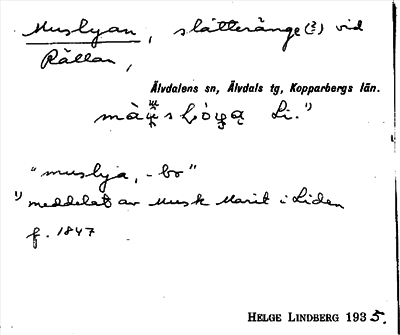 Muslyan, slåtteränge(?) vid
Rällan,
Älvdalens sn, Älvdals tg, Kopparbergs län.
Li. ¹)
"muslya, -bo"
¹) meddelat av Musk Marit i Liden
f. 1847
HELGE LINDBERG 1935.